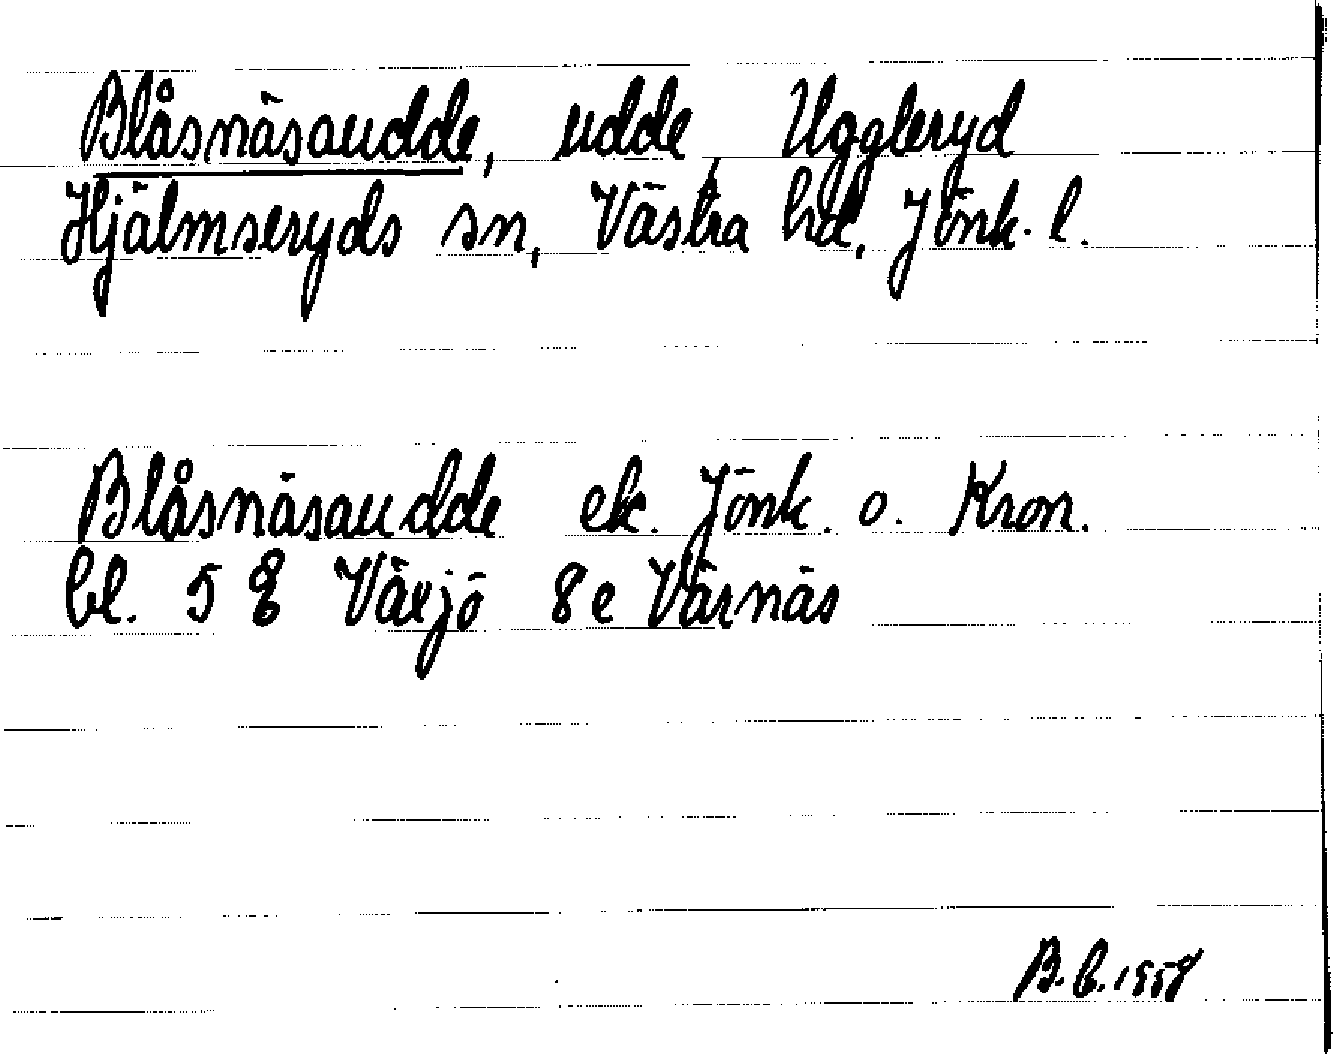 Blåsnäsaudde, udde, Uggleryd
Hjälmseryds sn, Västra hd, Jönk. l.
Blåsnäsaudde ek. Jönk. o. Kron.
bl. 5 8 Växjö 8e Värnäs
B.C. 1958